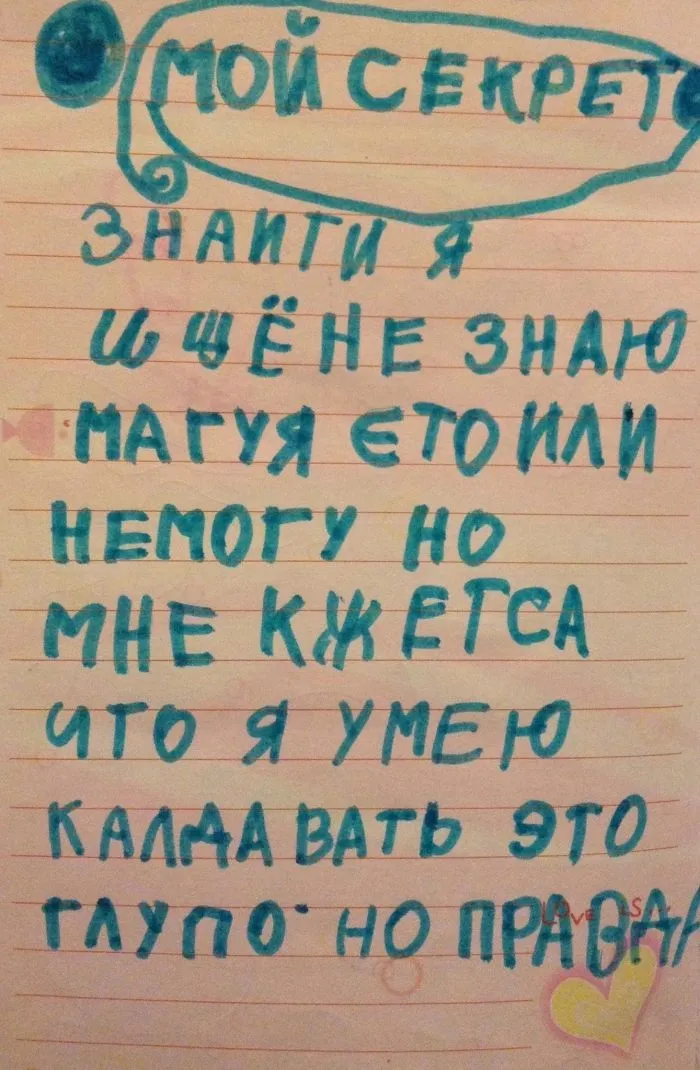 МОЙ СЕКРЕТ
ЗНАИТИ Я
ИЩЁ НЕ ЗНАЮ
МАГУ Я ЄТО ИЛИ
НЕМОГУ НО
МНЕ КЖЕТСА
ЧТО Я УМЕЮ
КАЛДАВАТЬ ЭТО
ГЛУПО НО ПРАВДА
LOVE IS...